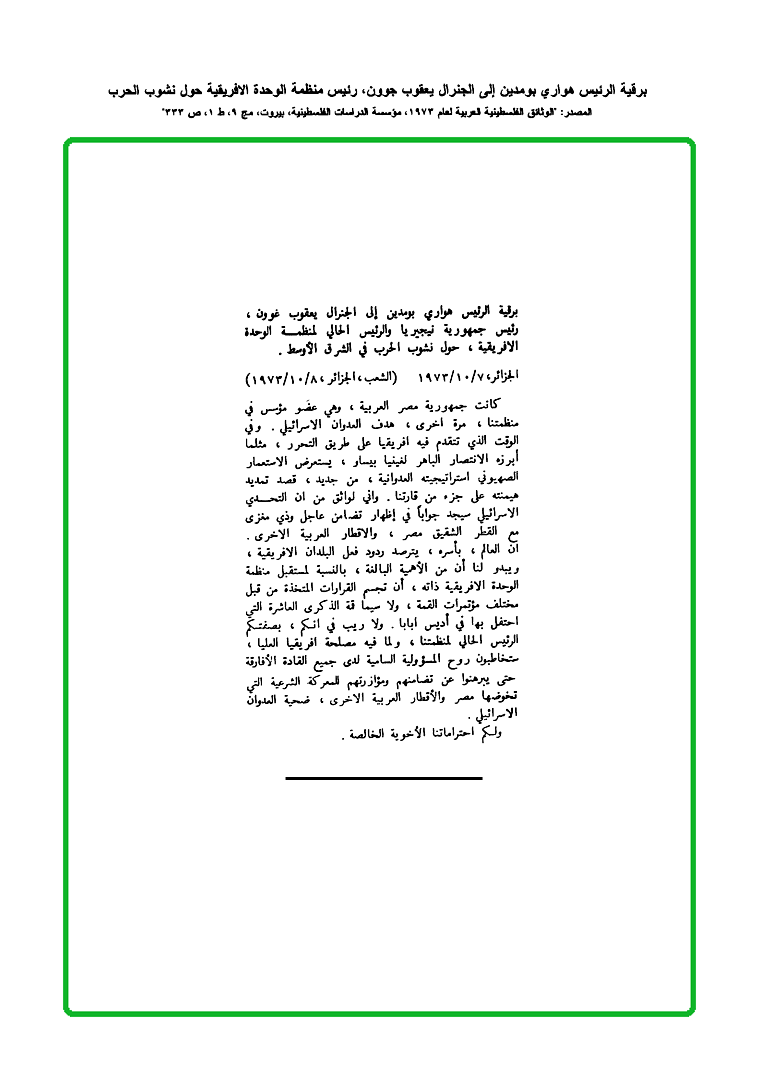 برقية الرئيس هواري بومدين إلى الجنرال يعقوب جوون، رئيس منظمة الوحدة الافريقية حول نشوب الحرب
المصدر: "الوثائق الفلسطينية العربية لعام ١٩٧٣، مؤسسة الدراسات الفلسطينية، بيروت، مج ٩، ط ١، ص ٣٣٣"
برقية الرئيس هواري بومدين إلى الجنرال يعقوب غوون ،
رئيس جمهورية نيجيريا والرئيس الحالي لمنظمـــة الوحدة
الافريقية ، حول نشوب الحرب في الشرق الأوسط .
الجزائر، ١٩٧٣/١٠/٧ (الشعب، الجزائر، ١٩٧٣/١٠/٨)
كانت جمهورية مصر العربية ، وهي عضو مؤسس في
منظمتنا ، مرة اخرى ، هدف العدوان الاسرائيلي . وفي
الوقت الذي تتقدم فيه افريقيا على طريق التحرر ، مثلما
أبرزه الانتصار الباهر لغينيا بيساو ، يستعرض الاستعمار
الصهيوني استراتيجيته العدوانية ، من جديد ، قصد تمديد
هيمنته على جزء من قارتنا . واني لواثق من ان التحـــدي
الاسرائيلي سيجد جواباً في إظهار تضامن عاجل وذي مغزى
مع القطر الشقيق مصر ، والاقطار العربية الاخرى .
ان العالم ، بأسره ، يترصد ردود فعل البلدان الافريقية ،
ويبدو لنا أن من الأهمية البالغة ، بالنسبة لمستقبل منظمة
الوحدة الافريقية ذاته ، أن تجسم القرارات المتخذة من قبل
مختلف مؤتمرات القمة ، ولا سيما قة الذكرى العاشرة التي
احتفل بها في أديس ابابا . ولا ريب في انكم ، بصفتكم
الرئيس الحالي لمنظمتنا ، ولما فيه مصلحة افريقيا العليا ،
ستخاطبون روح المسؤولية السامية لدى جميع القادة الأفارقة
حتى يبرهنوا عن تضامنهم ومؤازرتهم للمعركة الشرعية التي
تخوضها مصر والأقطار العربية الاخرى ، ضحية العدوان
الاسرائيلي .
ولكم احتراماتنا الأخوية الخالصة .